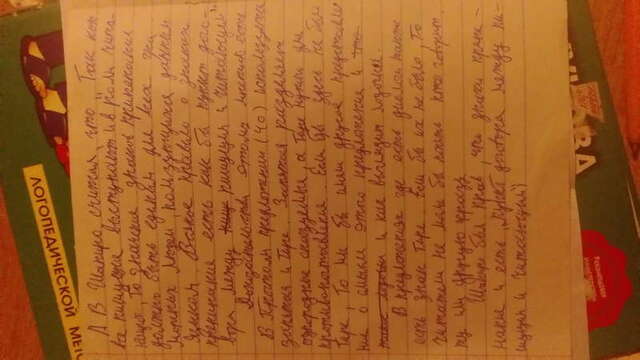 ЛОГОПЕДИЧЕСКОЙ
А В Шапиро считал, что „Так как
все пишущие выступают и в роли чита-
ющих, то значение знаков препинания
должно быть единым для всех гра-
мотных людей пользующихся данным
языком Всякое правило о знаках
препинания есть как бы пункт дого-
вора между пишущим и читающим"
Доказательства этого мнения есть
В простом предложении (40) используется
запятая и тире. Запятая разделяет
однородные сказуемые, а тире нужен для
противопоставления. Если бы здесь не был
тире, то мы бы имели другое представле-
ние о смысле этого предложения и
и как выглядит лодочка.
В предложениях где есть диалог также
есть знак тире. Если бы их не было, то
читатели не могли бы понять кто говорит
ту или другую фразу.
Шапиро был прав, что знаки препи-
нания и есть „пункт договора между пи-
шущим и читающим")